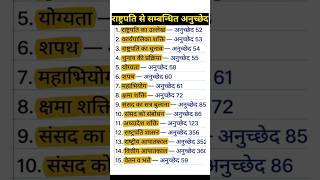 राष्ट्रपति से सम्बन्धित अनुच्छेद
1. राष्ट्रपति का उल्लेख — अनुच्छेद 52
2. कार्यपालिका शक्ति — अनुच्छेद 53
3. राष्ट्रपति का चुनाव — अनुच्छेद 54
4. चुनाव की प्रक्रिया — अनुच्छेद 55
5. योग्यता — अनुच्छेद 58
6. शपथ — अनुच्छेद 60
7. महाभियोग — अनुच्छेद 61
8. क्षमा शक्ति — अनुच्छेद 72
9. संसद का सत्र बुलाना — अनुच्छेद 85
10. संसद को संबोधन — अनुच्छेद 86
11. अध्यादेश शक्ति — अनुच्छेद 123
12. राष्ट्रपति शासन — अनुच्छेद 356
13. राष्ट्रीय आपातकाल — अनुच्छेद 352
14. वित्तीय आपातकाल — अनुच्छेद 360
15. वेतन व भत्ते — अनुच्छेद 59
5. योग्यता
6. शपथ
7. महाभियोग
8. क्षमा
9. संसद का
10. संसद
अनुच्छेद 85
86